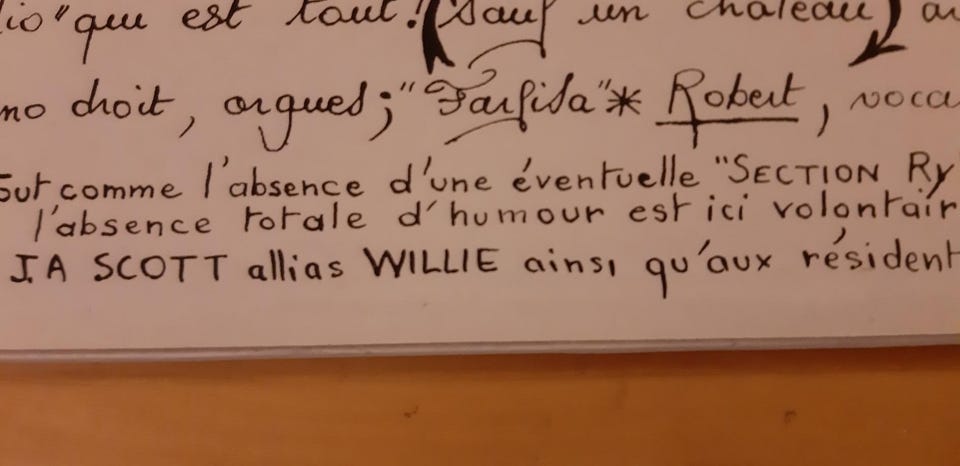 io" qui est tout! (Sauf un chateau) au
no droit, orgues; "Farfisa"* Robert, voca
out comme l'absence d'une éventuelle "SECTION Ry
l'absence totale d'humour est ici volontair
J.A SCOTT allias WILLIE ainsi qu'aux résident